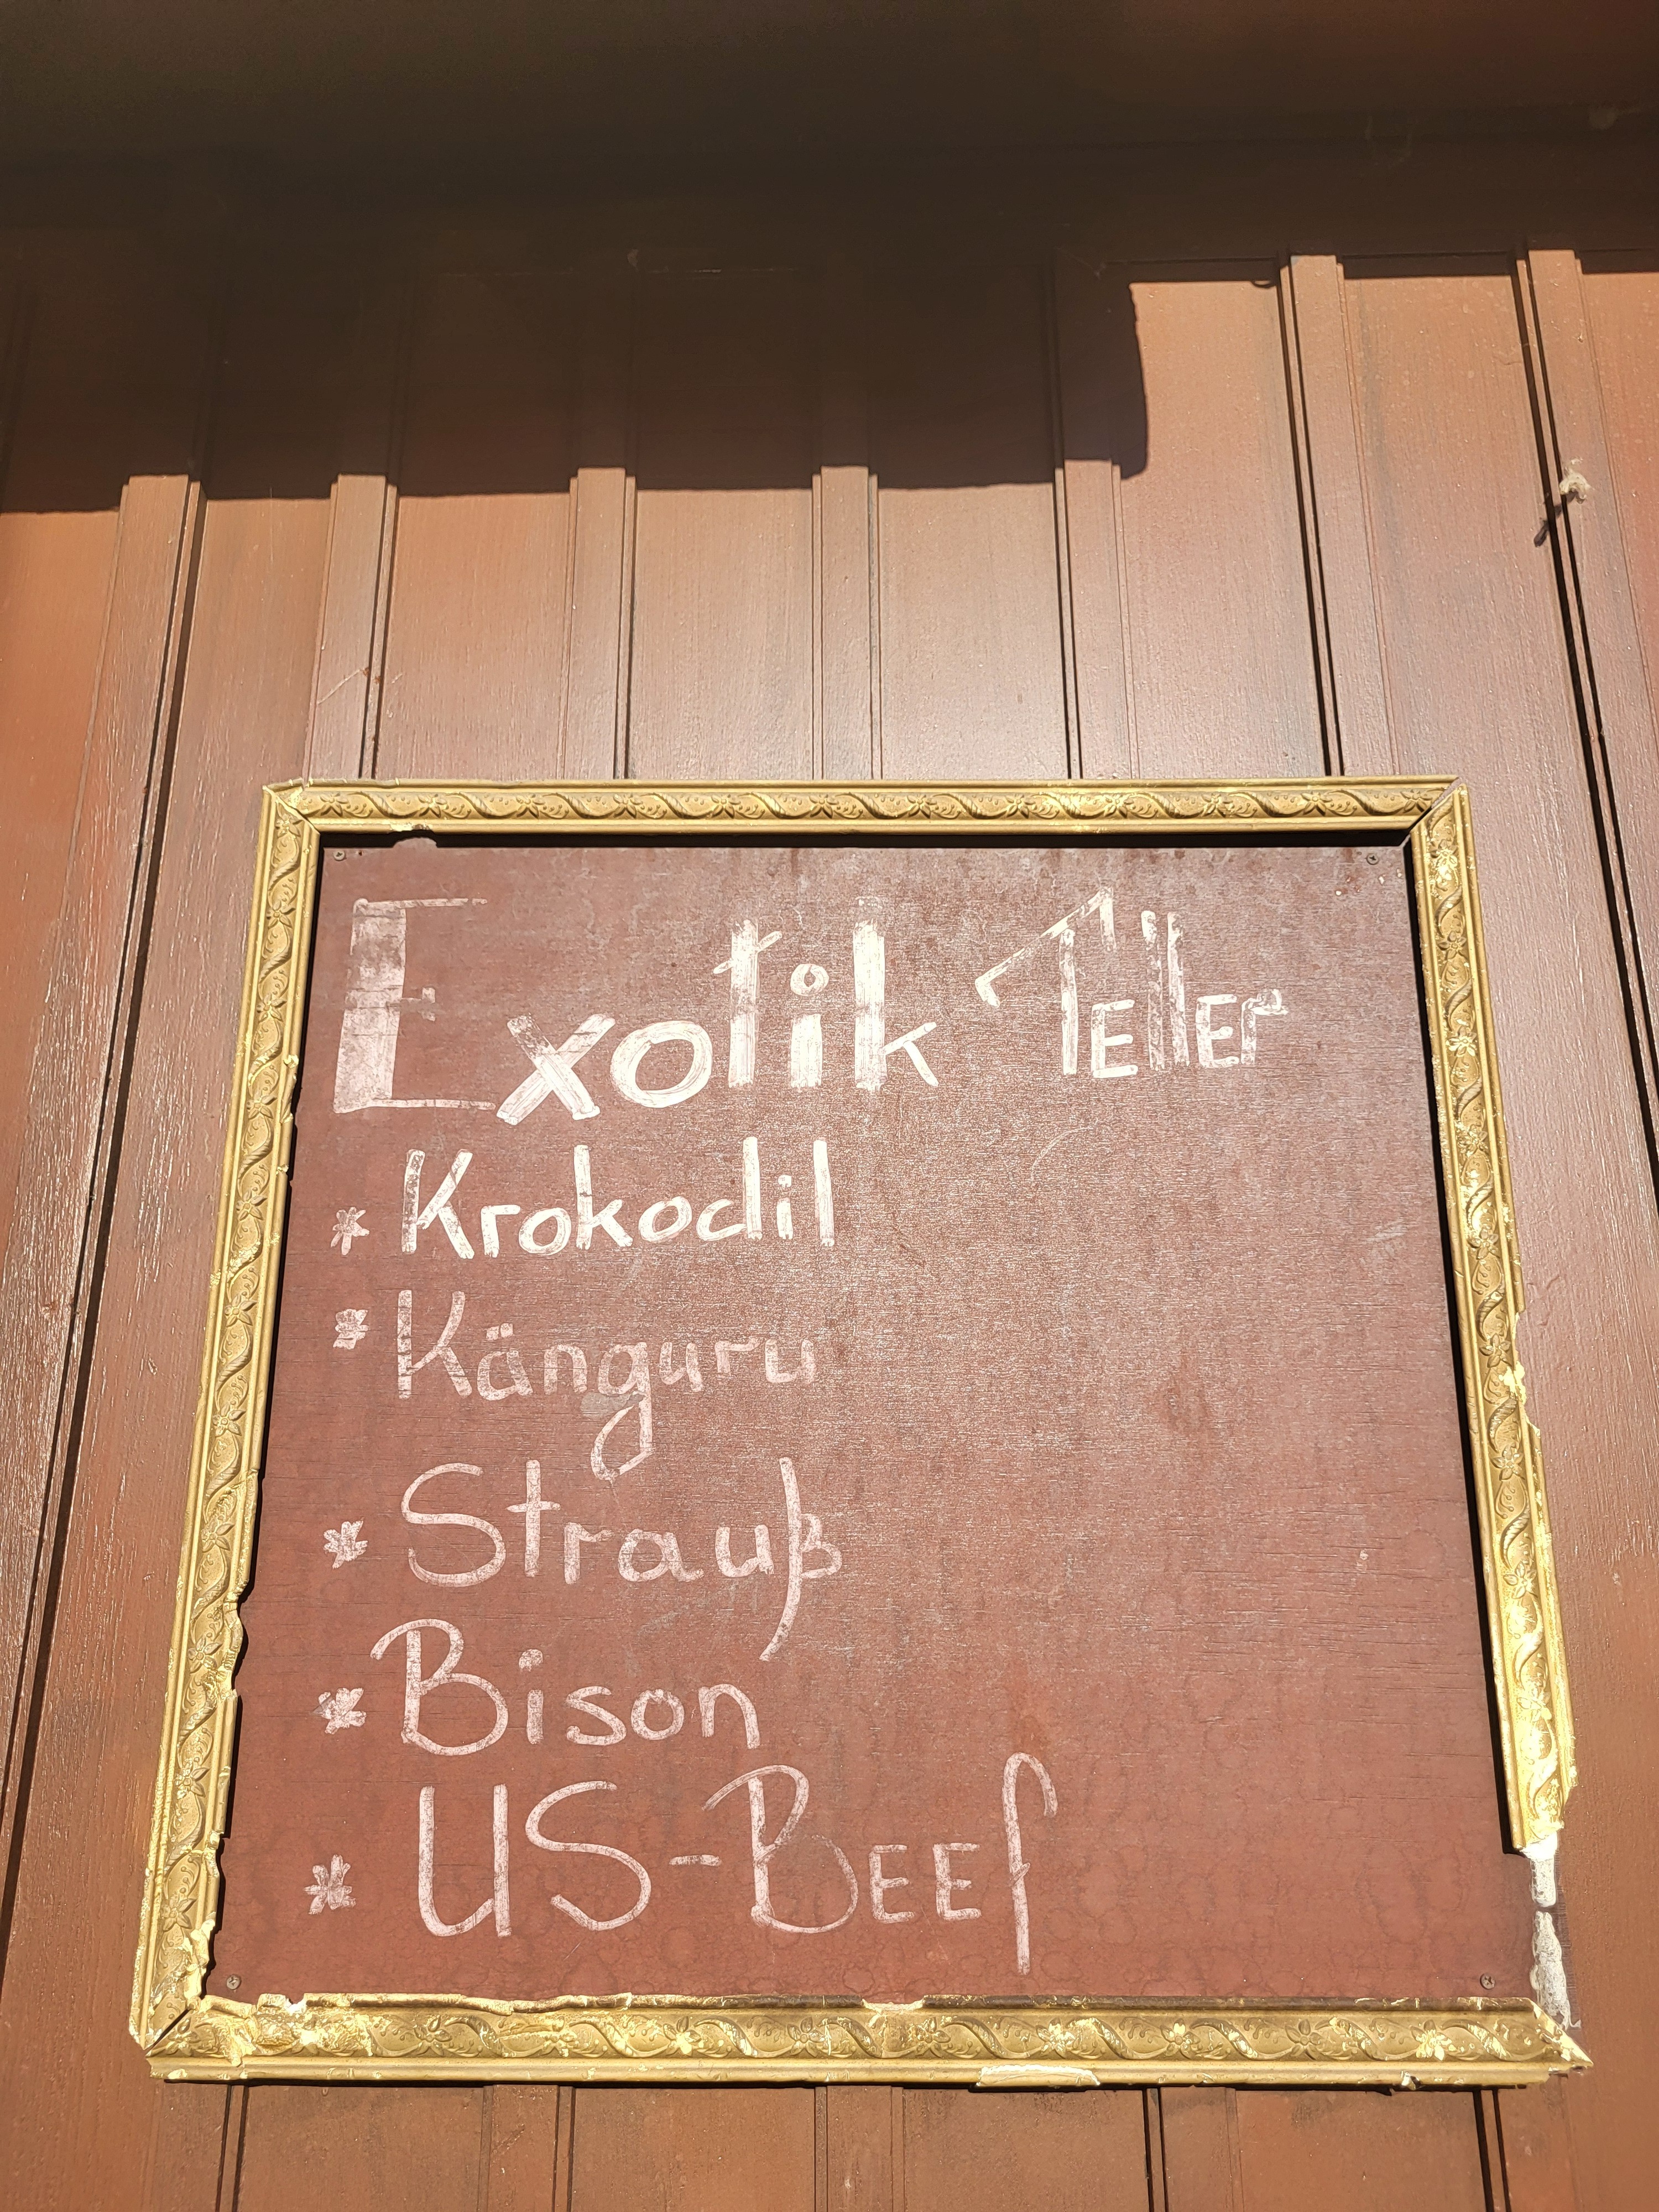 Exotik Teller
* Krokodil
* Känguru
* Strauß
* Bison
* US-BEEf